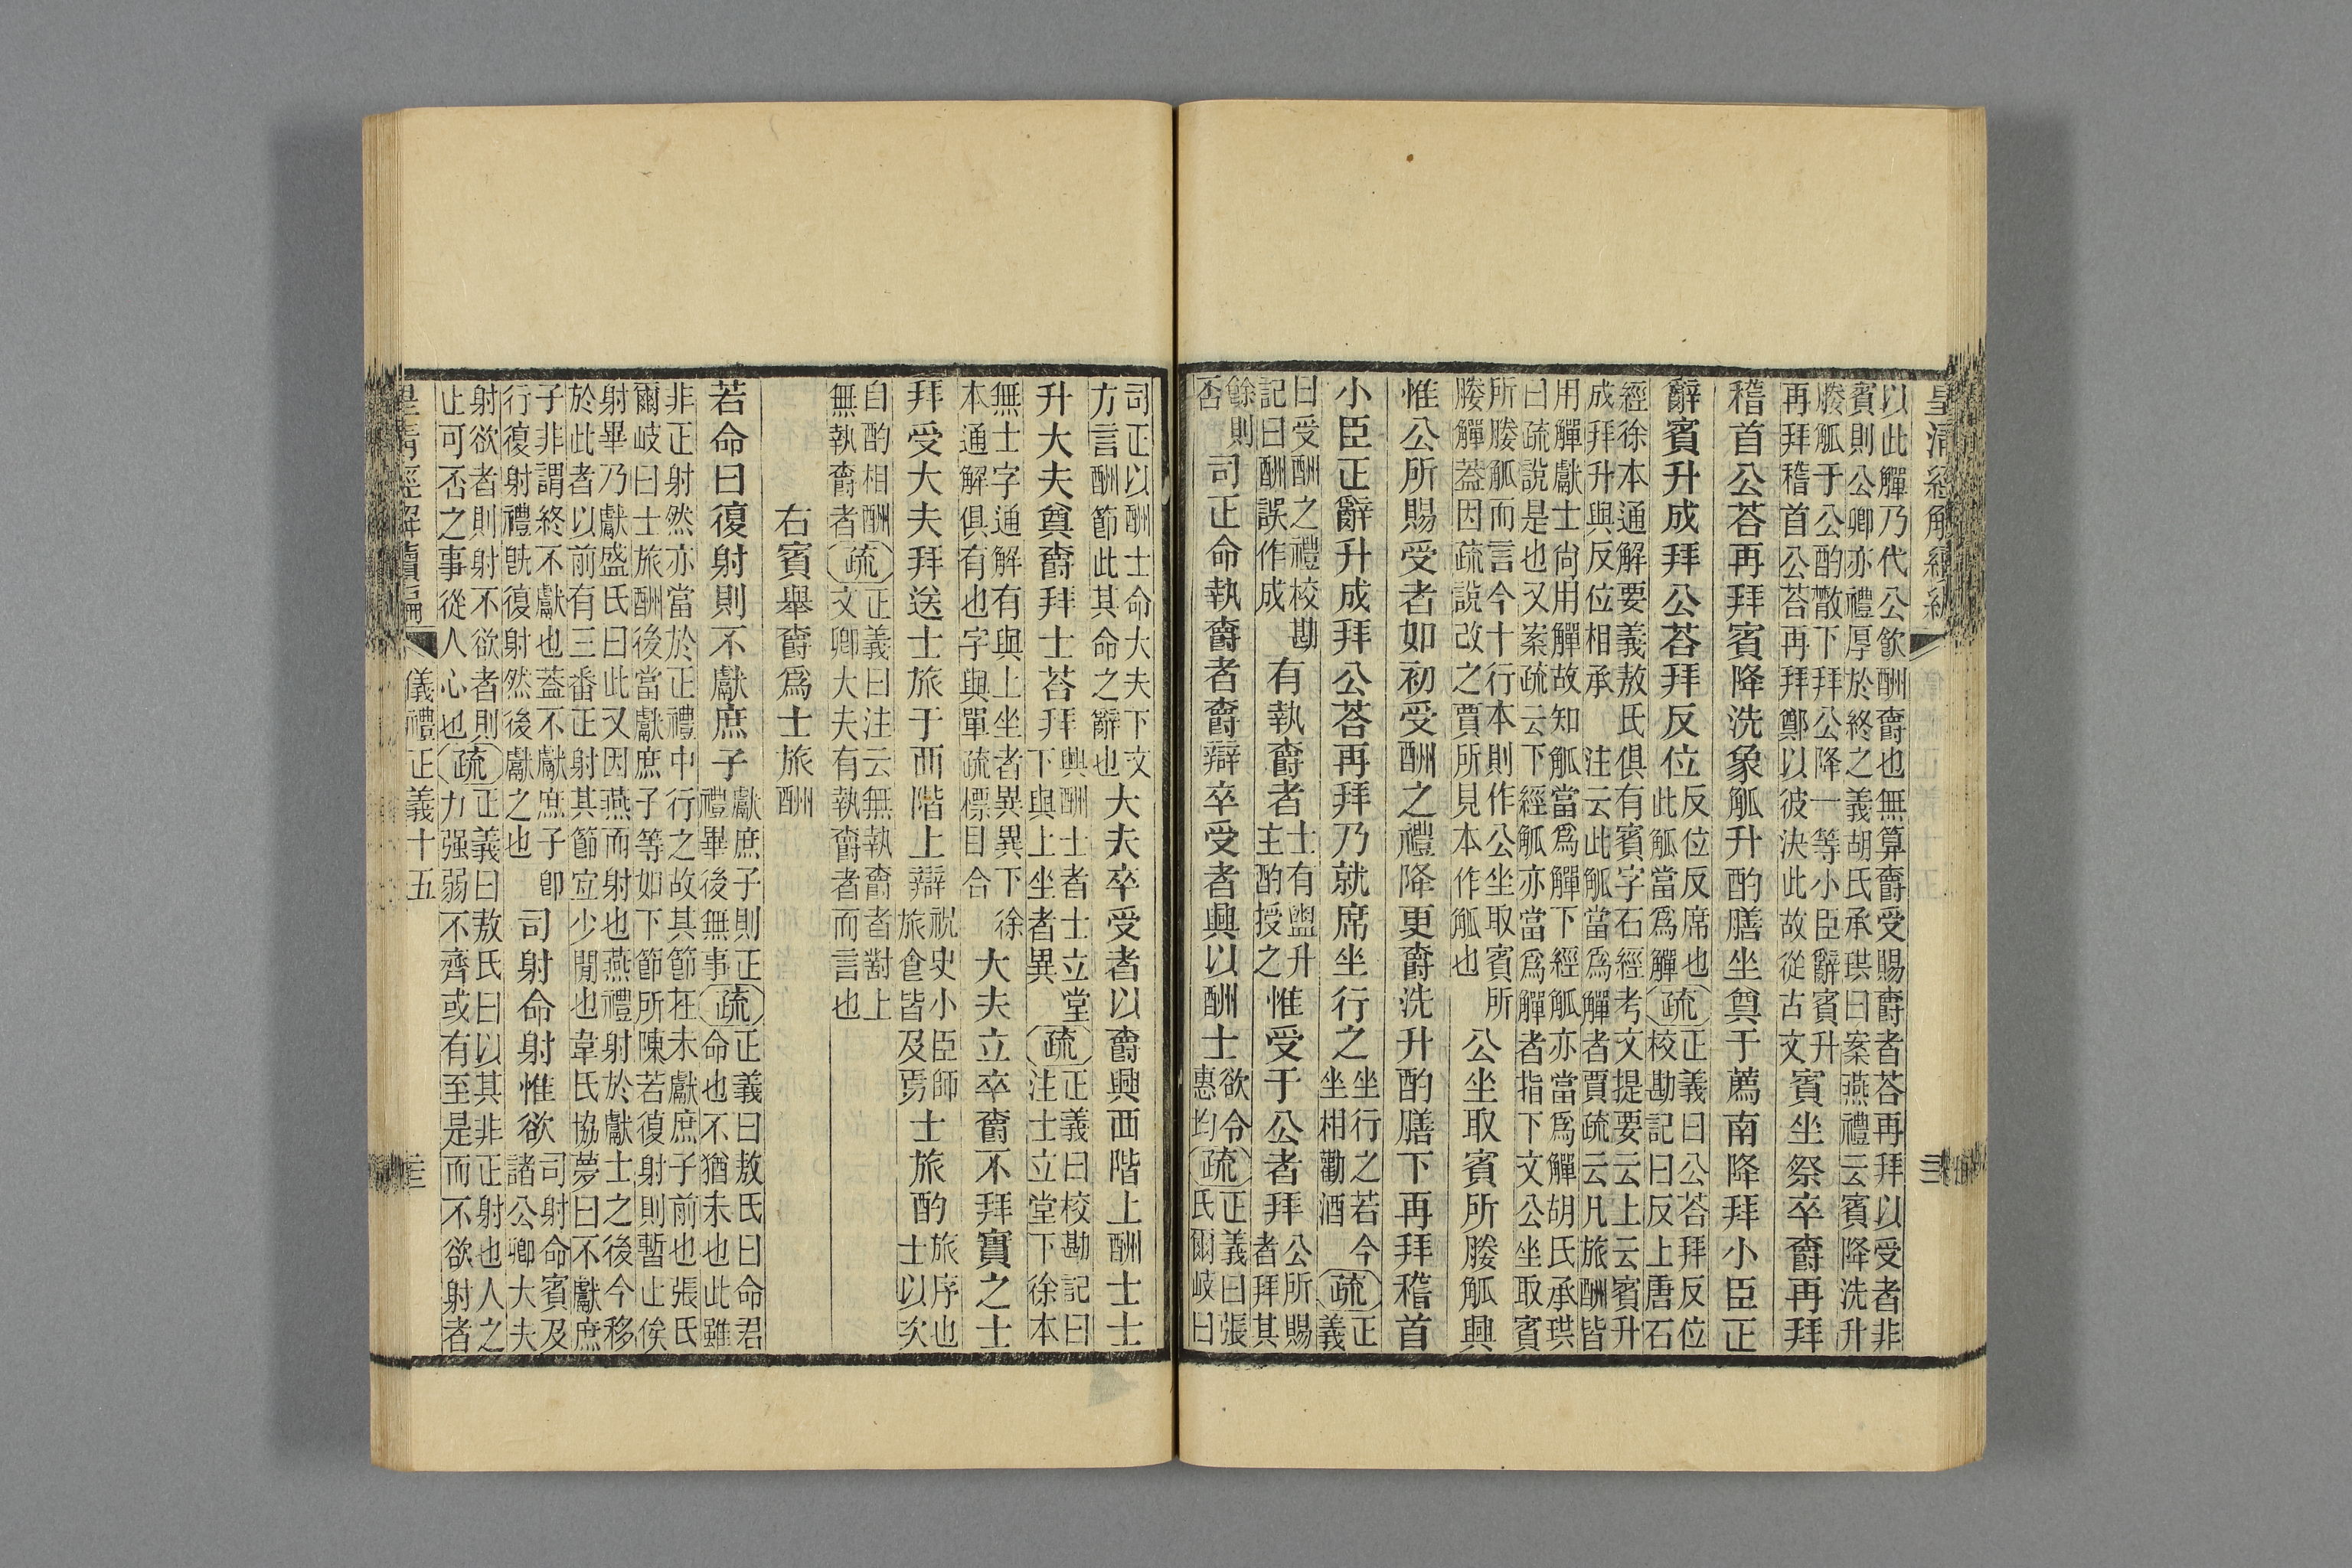 皇淸經解續編
以此觶乃代公飮酬爵也無算爵受賜爵者荅再拜以受者非
賓則公卿亦禮厚於終之義胡氏承珙曰案燕禮云賓降洗升
媵觚于公酌散下拜公降一等小臣辭賓升
再拜稽首公荅再拜鄭以彼決此故從古文賓坐祭卒爵再拜
稽首公荅再拜賓降洗象觚升酌膳坐奠于薦南降拜小臣正
辭賓升成拜公荅拜反位反位反席也此觚當爲觶疏正義曰公荅拜反位校勘記曰反上唐石
經徐本通解要義敖氏俱有賓字石經考文提要云上云賓升
成拜升與反位相承 注云此觚當爲觶者賈疏云凡旅酬皆
用觶獻士尙用觶故知觚當爲觶下經觚亦當爲觶胡氏承珙
曰疏說是也又案疏云下經觚亦當爲觶者指下文公坐取賓
所媵觚而言今十行本則作公坐取賓所
媵觶蓋因疏說改之賈所見本作觚也公坐取賓所媵觚興
惟公所賜受者如初受酬之禮降更爵洗升酌膳下再拜稽首
小臣正辭升成拜公荅再拜乃就席坐行之坐行之若今坐相勸酒疏正義
曰受酬之禮校勘記曰酬誤作成有執爵者士有盥升主酌授之惟受于公者拜公所賜者拜其
餘則否司正命執爵者爵辯卒受者興以酬士欲令惠均疏正義曰張氏爾岐曰
司正以酬士命大夫下文方言酬節此其命之辭也大夫卒受者以爵興西階上酬士士
升大夫奠爵拜士荅拜興酬士者士立堂下與上坐者異疏正義曰校勘記曰注士立堂下徐本
無士字通解有與上坐者異異下徐本通解俱有也字與單疏標目合大夫立卒爵不拜實之士
拜受大夫拜送士旅于西階上辯祝史小臣師旅食皆及焉士旅酌旅序也士以次
自酌相酬無執爵者疏正義曰注云無執爵者對上文卿大夫有執爵者而言也
右賓舉爵爲士旅酬
若命曰復射則不獻庶子獻庶子則正禮畢後無事疏正義曰敖氏曰命君命也不猶未也此雖
非正射然亦當於正禮中行之故其節在未獻庶子前也張氏
爾岐曰士旅酬後當獻庶子等如下節所陳若復射則暫止俟
射畢乃獻盛氏曰此又因燕而射也燕禮射於獻士之後今移
於此者以前有三番正射其節宜少閒也韋氏協夢曰不獻庶
子非謂終不獻也蓋不獻庶子卽
行復射禮旣復射然後獻之也司射命射惟欲司射命賓及諸公卿大夫
射欲者則射不欲者則止可否之事從人心也疏正義曰敖氏曰以其非正射也人之力强弱不齊或有至是而不欲射者
皇淸經解續編 儀禮正義十五